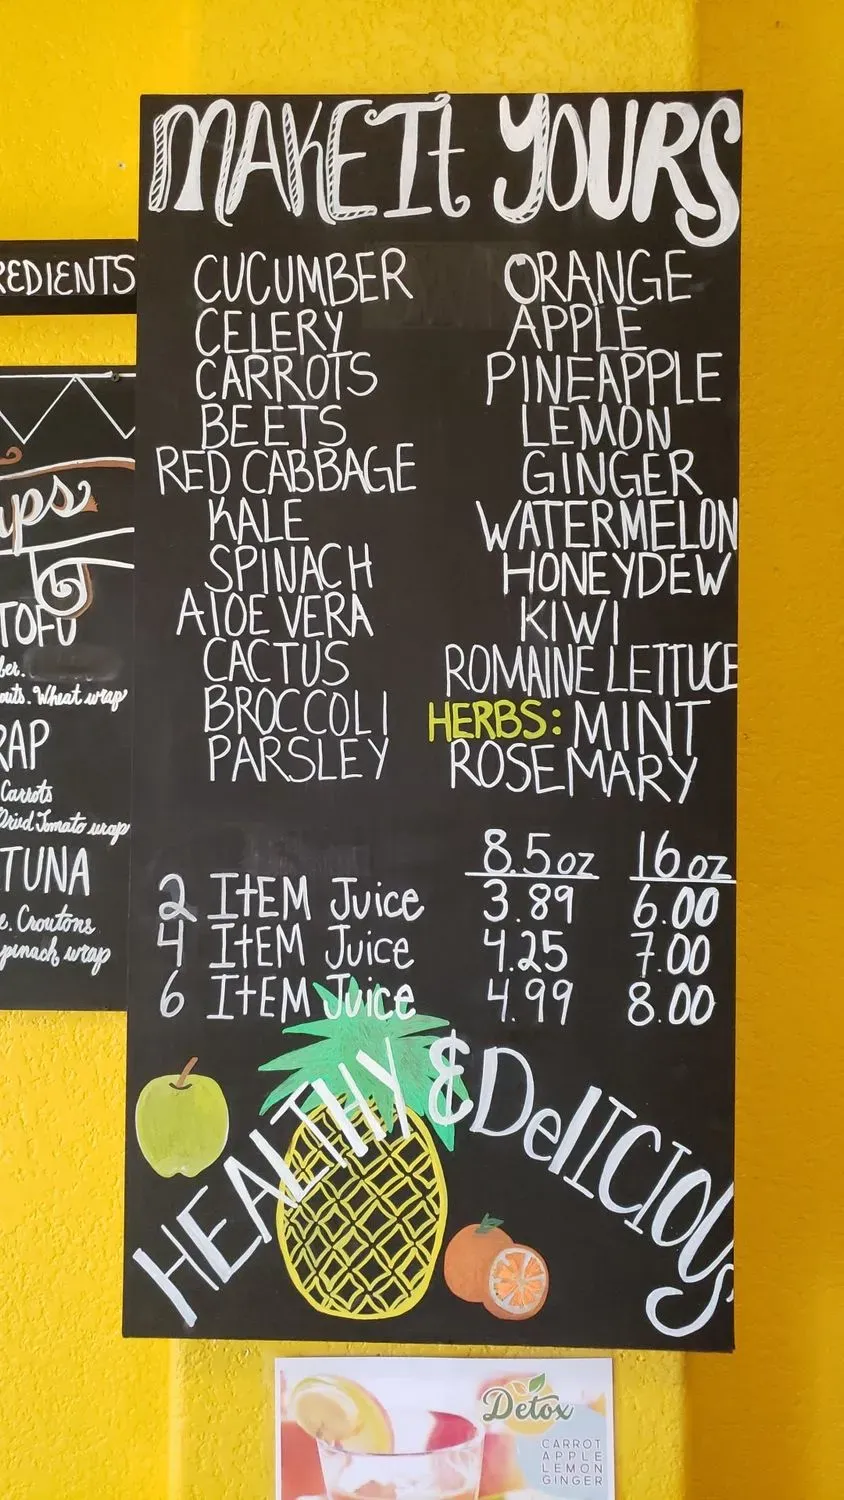 MAKE It YOURS
CUCUMBER
CELERY
CARROTS
BEETS
RED CABBAGE
KALE
SPINACH
AlOE VERA
CACTUS
BROCCOLI
PARSLEY
ORANGE
APPLE
PINEAPPLE
LEMON
GINGER
WATERMELON
HONEYDEW
KIWI
ROMAINE LETTUCE
HERBS: MINT
ROSEMARY
8.5oz 16 oz
2 ItEM Juice 3.89 6.00
4 ItEM Juice 4.25 7.00
6 ItEM Juice 4.99 8.00
HEALTHY & DelICIOUS
TOFU
Wheat wrap
Carrots
Tomato wrap
TUNA
Croutons
wrap
Detox
CARROT
APPLE
LEMON
GINGER